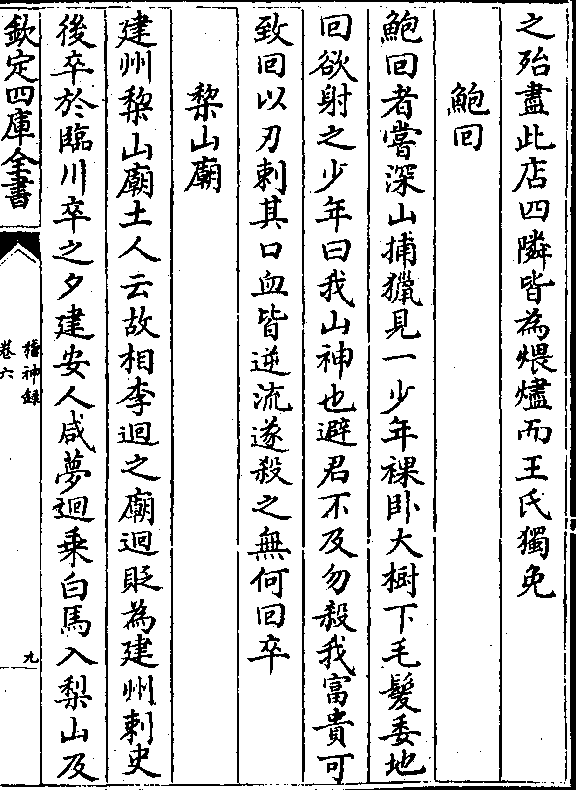 之殆盡此店四隣皆為煨燼而王氏獨免
鮑回
鮑回者嘗深山捕獵見一少年裸卧大樹下毛髮委地
回欲射之少年曰我山神也避君不及勿殺我富貴可
致回以刃刺其口血皆逆流遂殺之無何回卒
棃山廟
建州棃山廟土人云故相李迴之廟迴貶為建州刺史
後卒於臨川卒之夕建安人咸夢迴乗白馬入梨山及
欽定四庫全書
稽神録
卷六
九